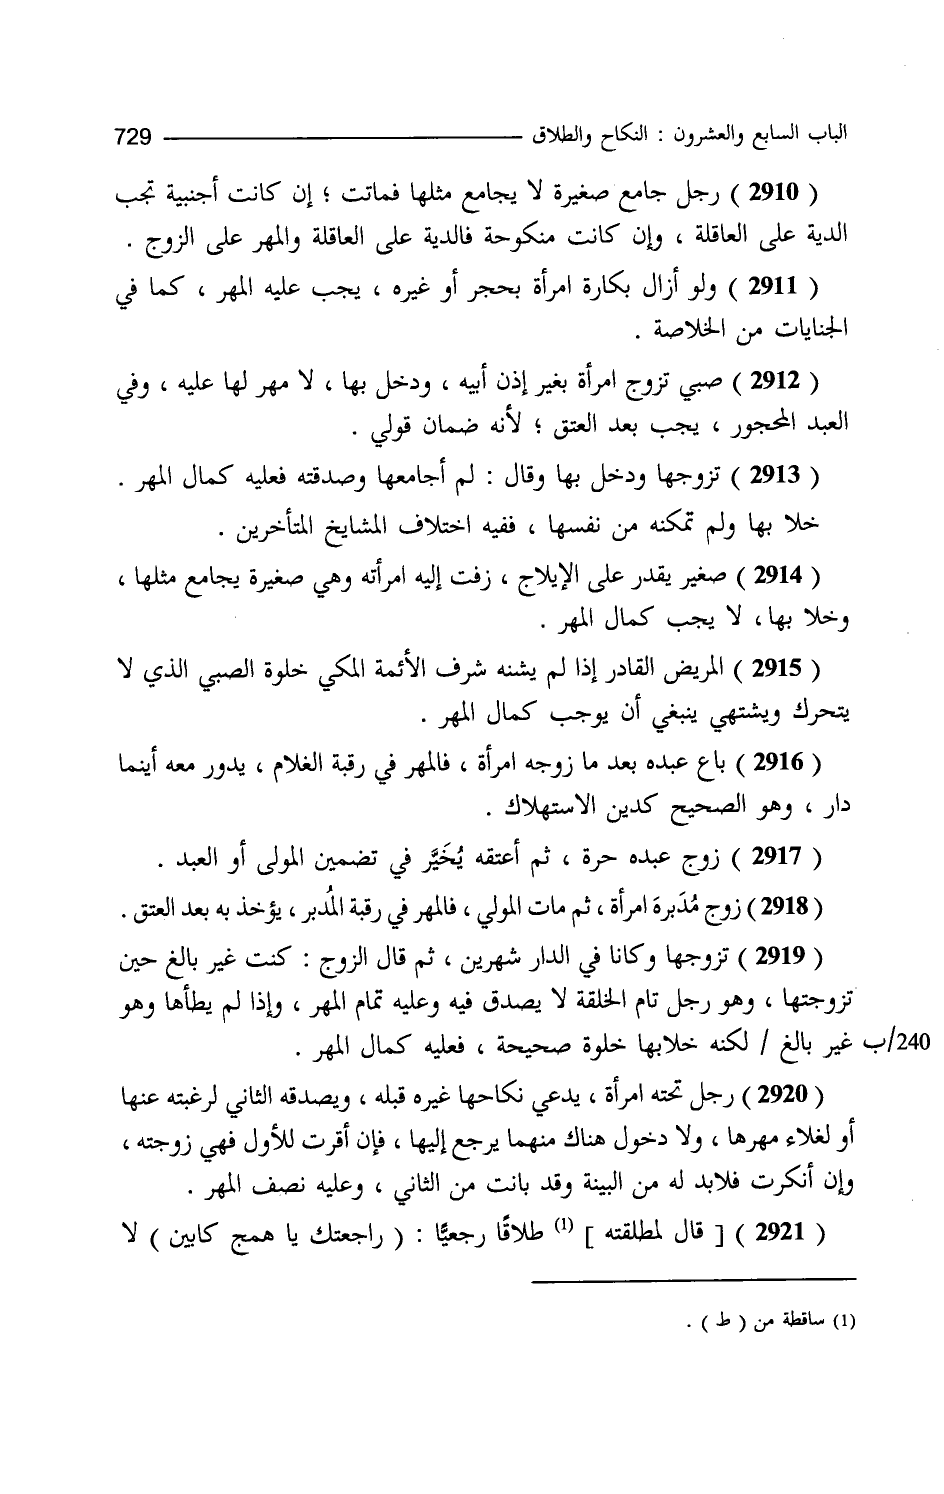 الباب السابع والعشرون : النكاح والطلاق 729
( 2910 ) رجل جامع صغيرة لا يجامع مثلها فماتت ؛ إن كانت أجنبية تجب
الدية على العاقلة ، وإن كانت منكوحة فالدية على العاقلة والمهر على الزوج .
( 2911 ) ولو أزال بكارة امرأة بحجر أو غيره ، يجب عليه المهر ، كما في
الجنايات من الخلاصة .
( 2912 ) صبي تزوج امرأة بغير إذن أبيه ، ودخل بها ، لا مهر لها عليه ، وفي
العبد المحجور ، يجب بعد العتق ؛ لأنه ضمان قولي .
( 2913 ) تزوجها ودخل بها وقال : لم أجامعها وصدقته فعليه كمال المهر .
خلا بها ولم تمكنه من نفسها ، ففيه اختلاف المشايخ المتأخرين .
( 2914 ) صغير يقدر على الإيلاج ، زفت إليه امرأته وهي صغيرة يجامع مثلها ،
وخلا بها، لا يجب كمال المهر .
( 2915 ) المريض القادر إذا لم يشنه شرف الأئمة المكي خلوة الصبي الذي لا
يتحرك ويشتهي ينبغي أن يوجب كمال المهر .
( 2916 ) باع عبده بعد ما زوجه امرأة ، فالمهر في رقبة الغلام ، يدور معه أينما
دار ، وهو الصحيح كدين الاستهلاك .
( 2917 ) زوج عبده حرة ، ثم أعتقه يُخَيَّر في تضمين المولى أو العبد .
( 2918 ) زوج مُدَبرهَ امرأة ، ثم مات المولي ، فالمهر في رقبة المُدبر ، يؤخذ به بعد العتق .
( 2919 ) تزوجها وكانا في الدار شهرين ، ثم قال الزوج : كنت غير بالغ حين
تزوجتها ، وهو رجل تام الخلقة لا يصدق فيه وعليه تمام المهر ، وإذا لم يطأها وهو
240/ب غير بالغ / لكنه خلابها خلوة صحيحة ، فعليه كمال المهر .
( 2920 ) رجل تحته امرأة ، يدعي نكاحها غيره قبله ، ويصدقه الثاني لرغبته عنها
أو لغلاء مهرها ، ولا دخول هناك منهما يرجع إليها ، فإن أقرت للأول فهي زوجته ،
وإن أنكرت فلابد له من البينة وقد بانت من الثاني ، وعليه نصف المهر .
( 2921 ) [ قال لمطلقته ] (1) طلاقًا رجعيًّا : ( راجعتك يا همج كابين ) لا
(1) ساقطة من ( ط ) .